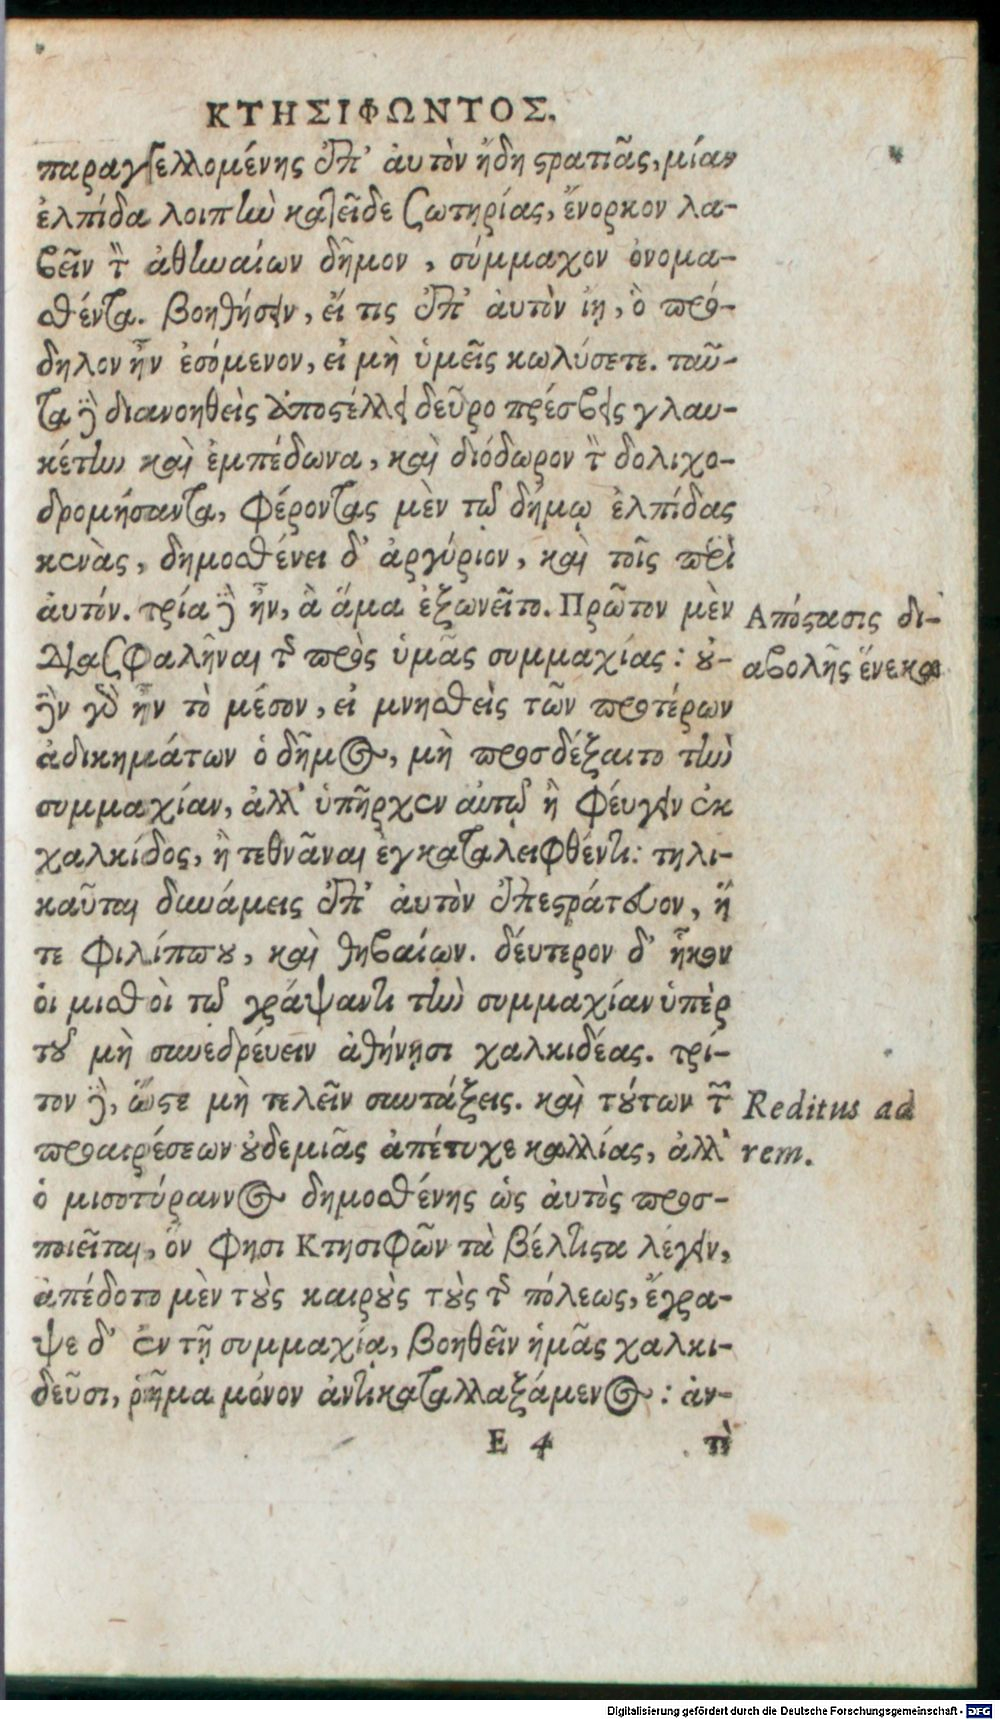 ΚΤΗΣΙΦΩΝΤΟΣ.
παραγγελλομένης ἐπ' ἀυτὸν ἤδη στρατιᾶς, μίαν
ἐλπίδα λοιπὴν κατεῖδε σωτηρίας, ἔνορκον λα-
βεῖν τὸν ἀθηναίων δῆμον, σύμμαχον ὀνομα-
σθέντα. βοηθήσειν, ἔι τις ἐπ' ἀυτὸν ἴῃ, ὃ πρό-
δηλον ἦν ἐσόμενον, εἰ μὴ ὑμεῖς κωλύσετε. ταῦ-
τα δὲ διανοηθεὶς ἀποστέλλει δεῦρο πρέσβεις γλαυ-
κέτην καὶ ἐμπέδωνα, καὶ διόδωρον τὸν δολιχο-
δρομήσαντα, φέροντας μὲν τῷ δήμῳ ἐλπίδας
κενὰς, δημοσθένει δ' ἀργύριον, καὶ τοῖς περὶ
ἀυτόν. τρία δὲ ἦν, ἃ ἅμα ἐξωνεῖτο. Πρῶτον μὲν
Απόστασις δι-
μὴ διασφαλῆναι τῆς πρὸς ὑμᾶς συμμαχίας: ου-
αβολῆς ἕνεκα
δὲν γὰρ ἦν τὸ μέσον, εἰ μνησθεὶς τῶν προτέρων
ἀδικημάτων ὁ δῆμος, μὴ προσδέξαιτο τὴν
συμμαχίαν, ἀλλ' ὑπῆρχεν αὐτῷ ἢ φέυγειν ἐκ
χαλκίδος, ἢ τεθνᾶναι ἐγκαταλειφθέντι: τηλι-
καῦται δυνάμεις ἐπ' ἀυτὸν ἐπεστράτευον, ἥ
τε φιλίππου, καὶ θηβαίων. δέυτερον δ' ἧκον
ὁι μισθοὶ τῷ γράψαντι τὴν συμμαχίαν ὑπὲρ
τοῦ μὴ συνεδρέυειν ἀθήνῃσι χαλκιδέας. τρί-
τον δὲ, ὥστε μὴ τελεῖν συντάξεις. καὶ τούτων τῶν
Reditus ad
προαιρέσεων ουδεμιᾶς ἀπέτυχε καλλίας, ἀλλ'
rem.
ὁ μισοτύραννος δημοσθένης ὡς ἀυτὸς προσ-
ποιεῖται, ὅν φησι Κτησιφῶν τὰ βέλτιστα λέγειν,
ἀπέδοτο μὲν τοὺς καιροὺς τοὺς τῆς πόλεως, ἔγρα-
ψε δ' ἐν τῇ συμμαχίᾳ, βοηθεῖν ἡμᾶς χαλκι-
δεῦσι, ῥῆμα μόνον ἀντικαταλλαξάμενος: ἀν-
E 4 τὶ
Digitalisierung gefördert durch die Deutsche Forschungsgemeinschaft - DFG